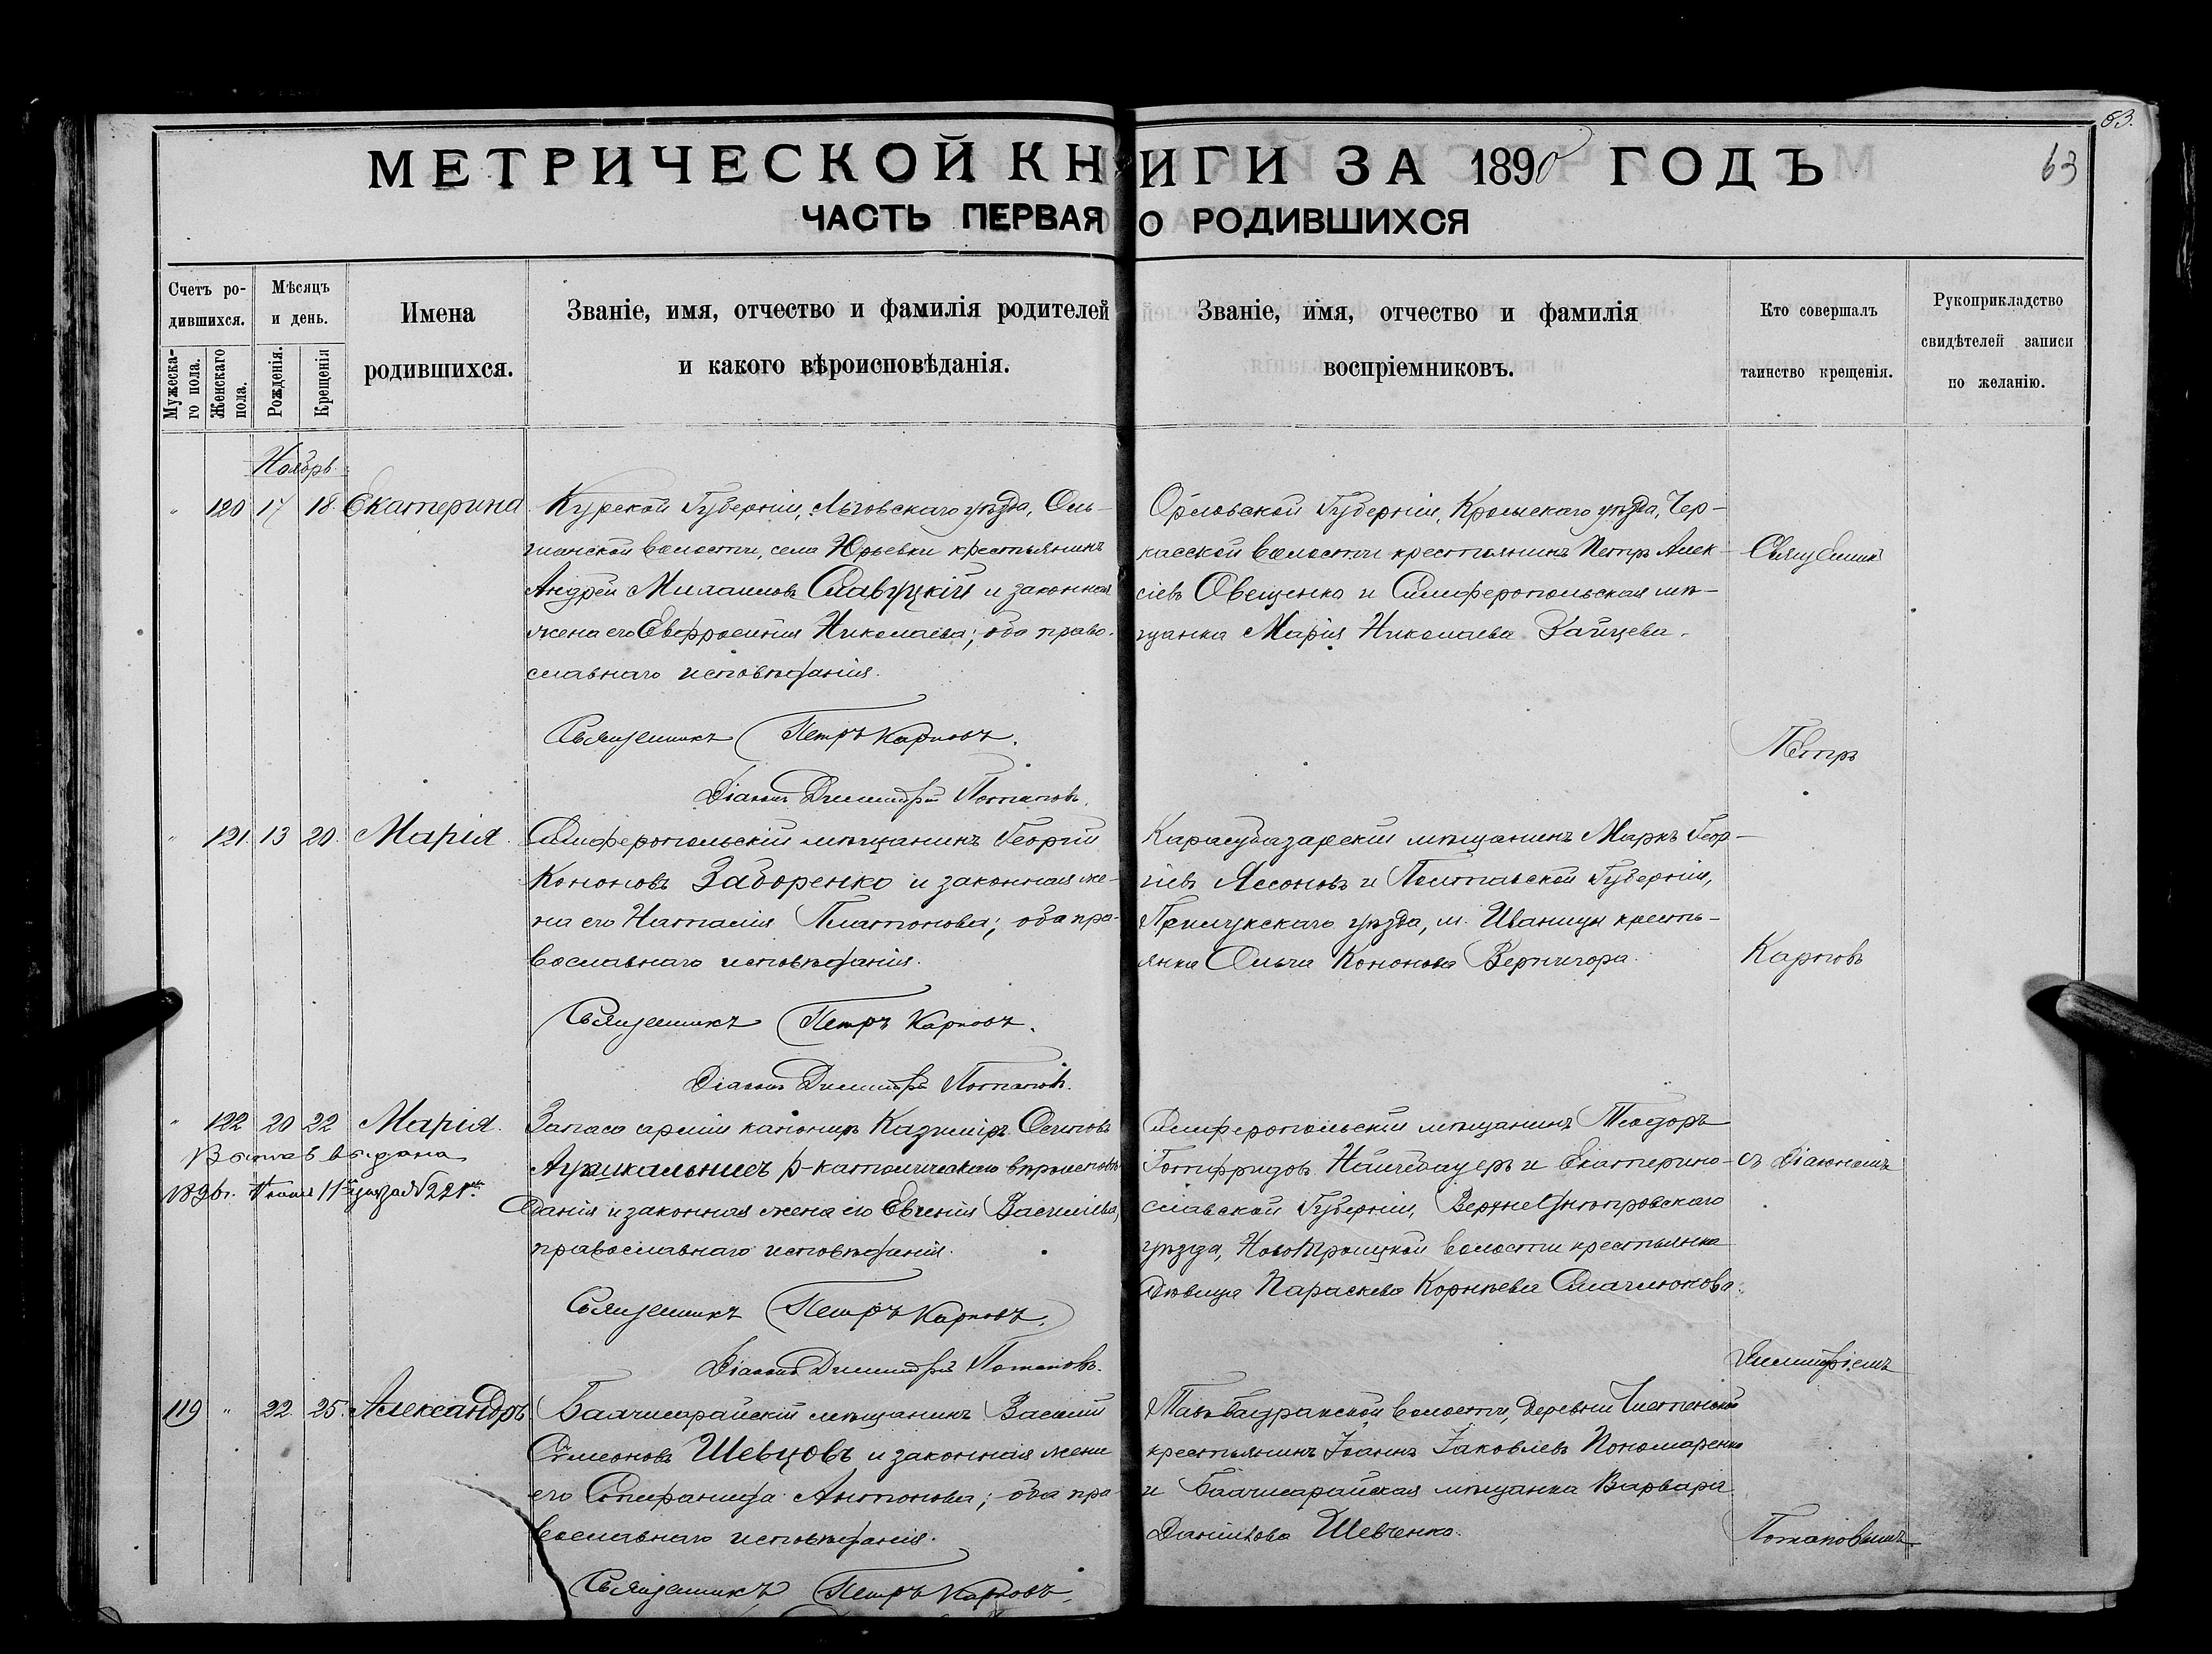 63.
МЕТРИЧЕСКОЙ КНИГИ ЗА 1890 ГОДЪ
63
ЧАСТЬ ПЕРВАЯ О РОДИВШИХСЯ
Счетъ ро-
дившихся.
Мужеска-
го пола.
Женскаго
пола.
Мѣсяцъ
и день.
Рожденія.
Крещенія
Имена
родившихся.
Званіе, имя, отчество и фамилія родителей
и какого вѣроисповѣданія.
Званіе, имя, отчество и фамилія
воспріемниковъ.
Кто совершалъ
таинство крещенія.
Рукоприкладство
свидѣтелей записи
по желанію.
Ноябрь
" 120 17 18 Екатерина
Курской Губерніи, Льговскаго уѣзда, Оль-
шанской волости, села Юрьевки крестьянинъ
Андрей Михаиловъ Славуцкій и законная
жена его Евфросинія Николаева; оба право-
славнаго исповѣданія.
Священникъ Петръ Карповъ.
Діаконъ Димитрій Потаповъ.
Орловской Губерніи, Кромскаго уѣзда, Чер-
касской волости крестьянинъ Петръ Алек-
сіевъ Овещенко и Симферопольская мѣ-
щанка Марія Николаева Зайцева.
Священникъ
Петръ
" 121. 13 20. Марія.
Симферопольскій мѣщанинъ Георгій
Кононовъ Заборенко и законная же-
на его Наталія Платонова; оба пра-
вославнаго исповѣданія.
Священникъ Петръ Карповъ.
Діаконъ Димитрій Потаповъ.
Карасубазарскій мѣщанинъ Маркъ Геор-
гіевъ Ясоновъ и Полтавской Губерніи,
Прилукскаго уѣзда, м. Иваницы кресть-
янка Ольга Кононова Вернигора.
Карповъ
" 122 20 22 Марія.
Выпись выдана
1896г. Іюня 11 за № 221
Запаса арміи канониръ Казиміръ Осиповъ
р-католическаго вѣроисповѣ-
данія и законная жена его Евгенія Василіева,
православнаго исповѣданія.
Священникъ Петръ Карповъ.
Діаконъ Димитрій Потаповъ.
Симферопольскій мѣщанинъ Теодоръ
Готфридовъ и Екатерино-
славской Губерніи, Верхнеднѣпровскаго
уѣзда, Новотроицкой волости крестьянка
дѣвица Параскева Корнѣева
съ Діакономъ
Димитріемъ
119 " 22. 25. Александръ
Бахчисарайскій мѣщанинъ Василій
Симеоновъ Шевцовъ и законная жена
его Стефанида Антонова; оба пра-
вославнаго исповѣданія.
Священникъ Петръ Карповъ.
волости, деревни
крестьянинъ Іоаннъ Іаковлевъ Пономаренко
и Бахчисарайская мѣщанка Варвара
Даніилова Шевченко.
Потаповымъ